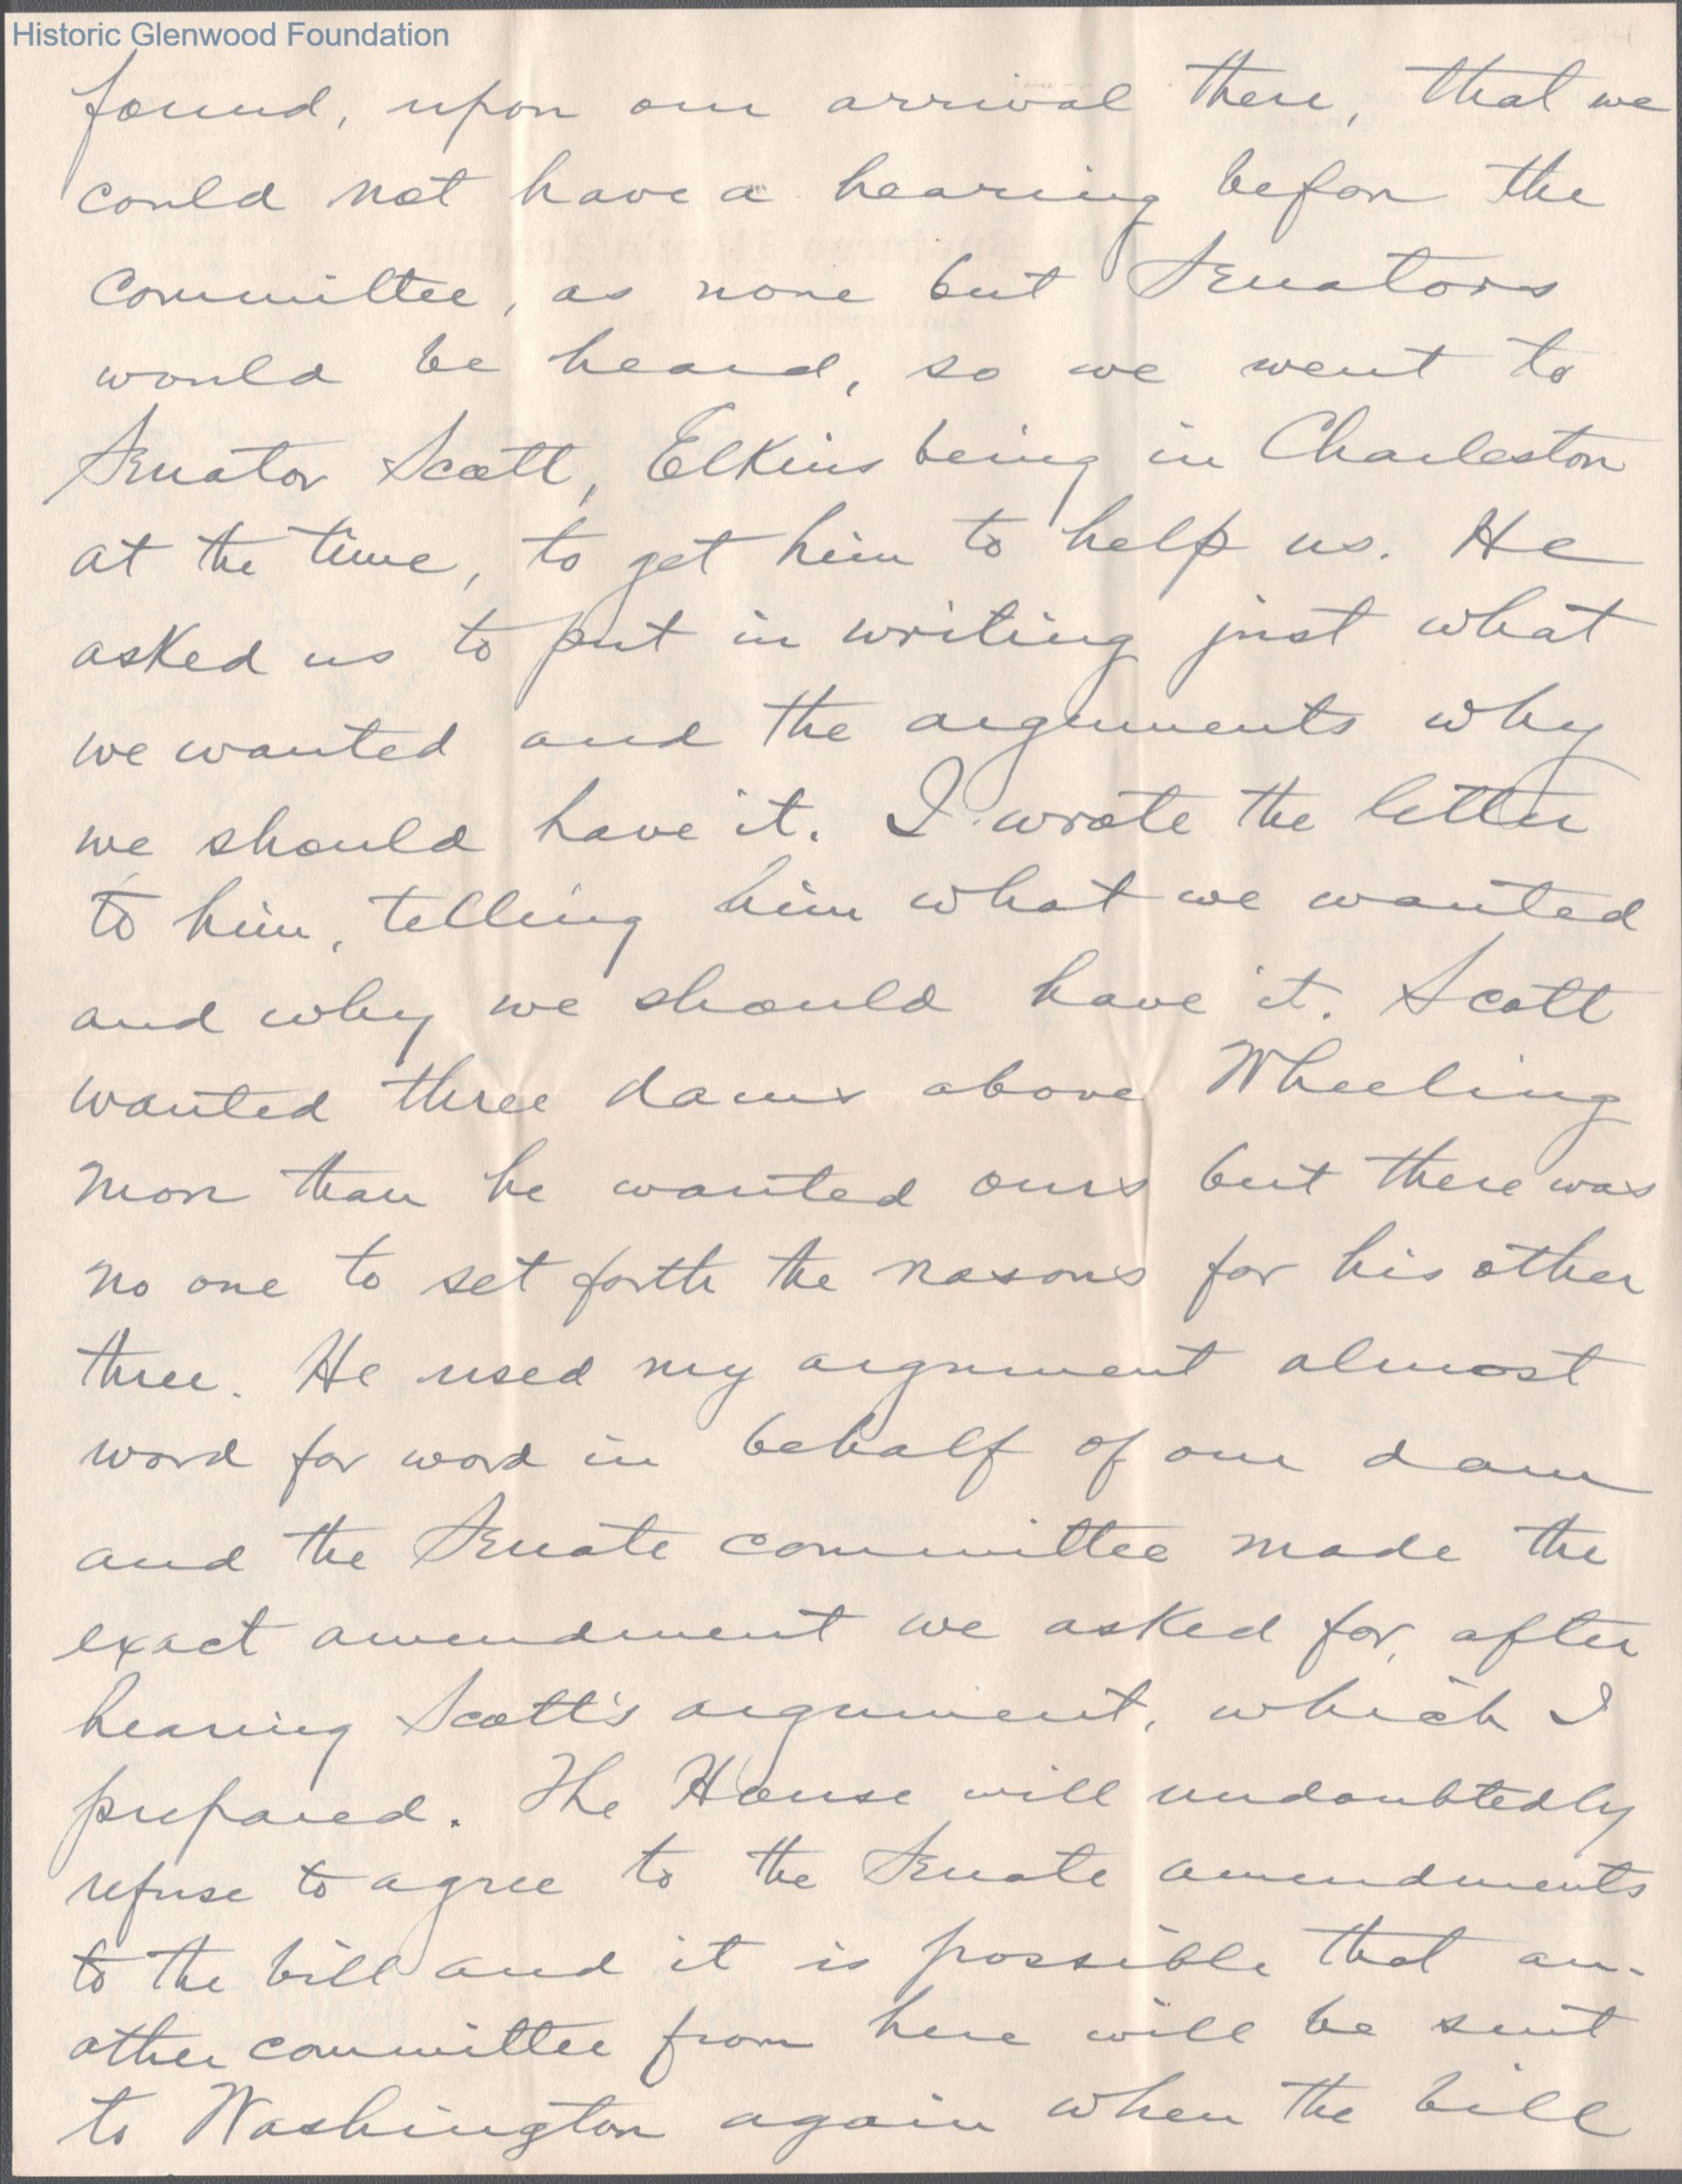 Historic Glenwood Foundation
found, upon our arrival there, that we
could not have a hearing before the
committee, as none but Senators
would be heard, so we went to
Senator Scott, Elkins being in Charleston
at the time, to get him to help us. He
asked us to put in writing just what
we wanted and the arguments why
we should have it. I wrote the letter
to him, telling him what we wanted
and why we should have it. Scott
wanted three dams above Wheeling
more than he wanted ours but there was
no one to set forth the reasons for his other
three. He used my argument almost
word for word in behalf of our dam
and the Senate committee made the
exact amendment we asked for, after
hearing Scott's argument, which I
prepared. The House will undoubtedly
refuse to agree to the Senate amendments
to the bill and it is possible that an-
other committee from here will be sent
to Washington again when the bill